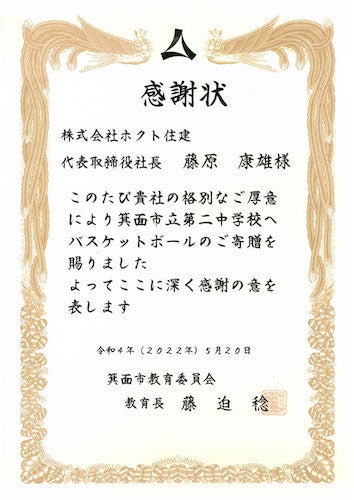 感謝状
株式会社ホクト住建
代表取締役社長 藤原 康雄様
このたび貴社の格別なご厚意
により箕面市立第二中学校へ
バスケットボールのご寄贈を
賜りました
よってここに深く感謝の意を
表します
令和4年（2022年）5月20日
箕面市教育委員会
教育長 藤 迫 稔